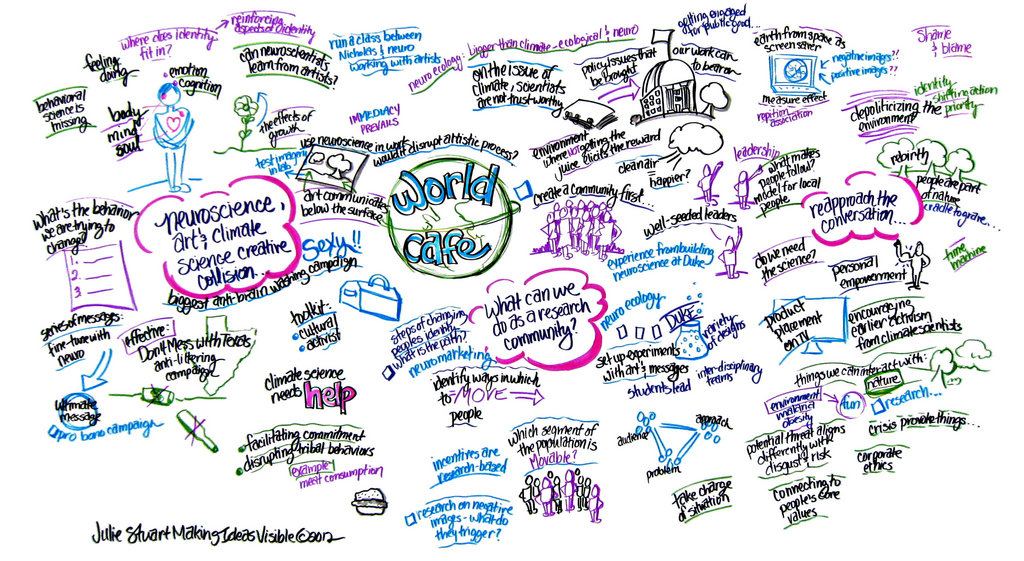 where does identity
fit in?
reinforcing
aspects of identity
feeling
doing
emotion
cognition
behavioral
science is
missing
body
mind
soul
can neuroscientists
learn from artists?
the effects of
growth
run a class between
Nicholas & neuro
working with artists
IMMEDIACY
PREVAILS
use neuroscience in work
would it disrupt artistic process?
testimony
in lab
art communicates
below the surface
neuro ecology: bigger than climate - ecological & neuro
on the issue of
climate, scientists
are not trustworthy
policy issues that
be brought
our work can
to bear on
getting engaged
for public good...
earth from space as
screen saver
negative images??
positive images??
measure effect
repition
association
shame
& blame
identity
shifting action
priority
depoliticizing the
environment
rebirth
people are part
of nature
cradle to grave...
reapproach the
conversation...
time
machine
personal
empowerment
World
Cafe
environment
where not getting the
juice elicits the reward
clean air
=
happier?
create a community first...
leadership
what makes
people follow?
model for local
people
well-seeded leaders
experience from building
neuroscience at Duke
do we need
the science?
what's the behavior
we are trying to
change?
1.
2.
3.
neuroscience,
art & climate
science creative
collision...
sexy!!
biggest anti-brain washing campaign
series of messages:
fine-tune with
neuro
ultimate
message
pro bono campaign
effective:
Don't Mess with Texas
anti-littering
campaign
toolkit:
cultural
activist
climate science
needs help
facilitating commitment
disrupting tribal behaviors
example:
meat consumption
what can we
do as a research
community?
steps of changing
people's identity
what is the path?
neuromarketing
identify ways in which
to MOVE
people
which segment of
the population is
Movable?
incentives are
research-based
research on negative
images - what do
they trigger?
neuro ecology
DUKE
variety
of designs
set up experiments
with art & messages
students lead
inter-disciplinary
teams
audience
approach
problem
take charge
of situation
product
placement
on TV
encouraging
earlier activism
from climate scientists
things we can interact with:
nature
environment
malarial
obesity
fun
research...
potential threat aligns
differently with
disgust & risk
crisis provoke things...
corporate
ethics
connecting to
people's core
values
Julie Stuart Making Ideas Visible © 2012